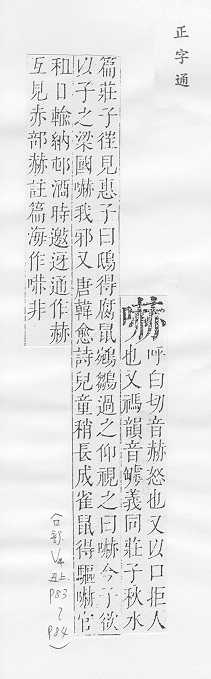 正字通
嚇
呼白切音赫怒也又以口拒人
也又禡韻音罅義同莊子秋水
篇莊子徃見惠子曰鴟得腐鼠鵷鶵過之仰視之曰嚇今子欲
以子之梁國嚇我邪又唐韓愈詩兒童稍長成雀鼠得驅嚇官
租日輸納邨酒時邀迓通作赫
互見赤部赫註篇海作非
(口部 V4 丑上 P83 ~ P84)